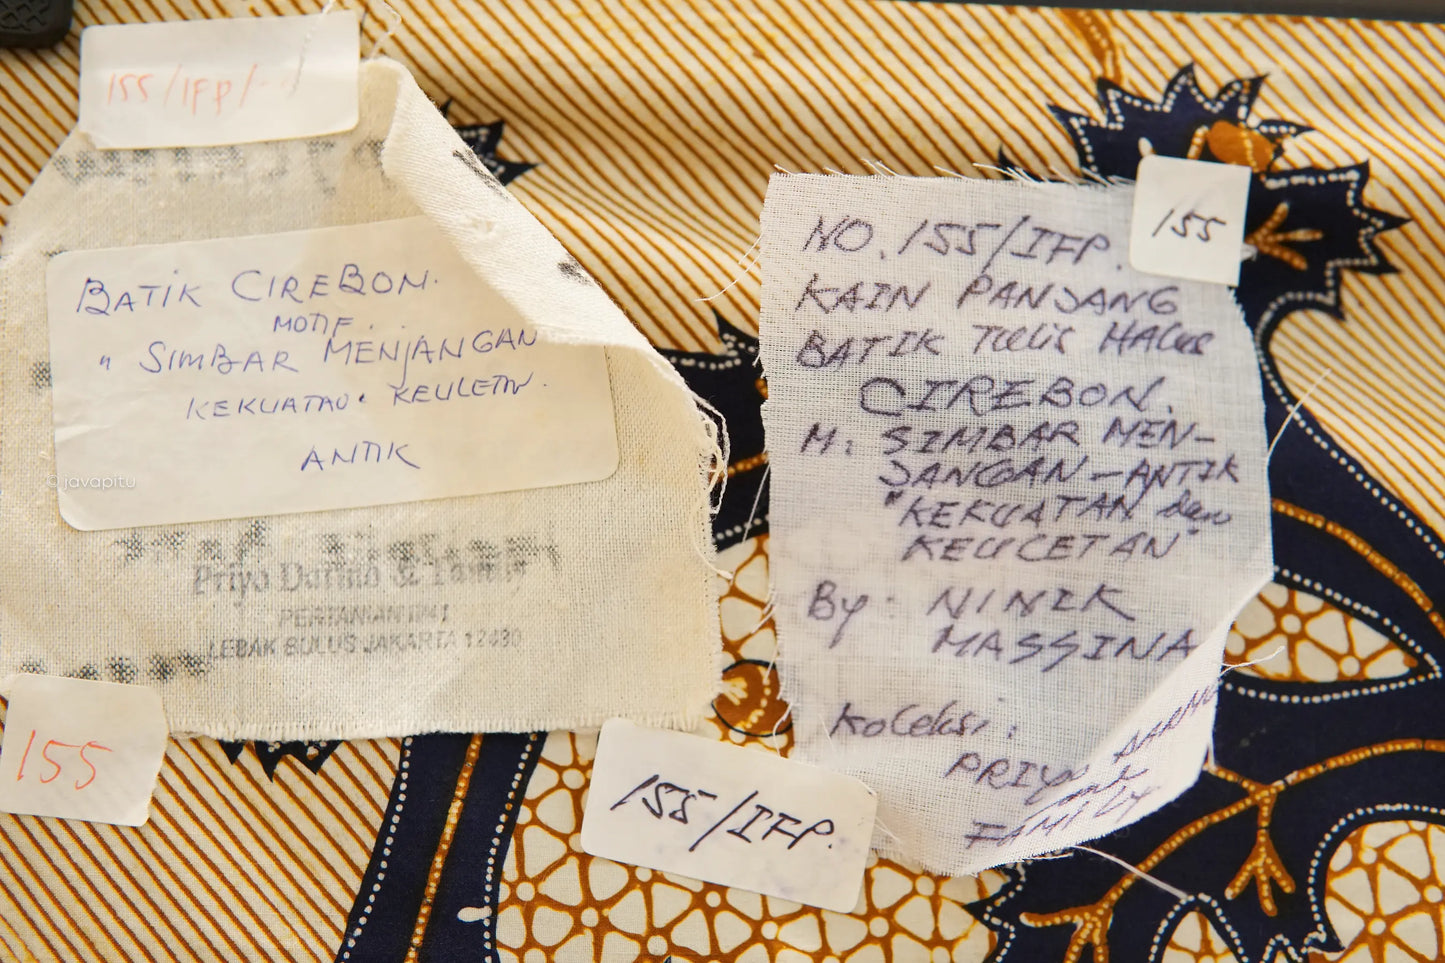 155/IFP/
BATIK CIREBON.
MOTIF.
" SIMBAR MENJANGAN
KEKUATAN. KEULETN.
ANTIK
© javapitu
Priyo Darmo &
PERTANIAN
LEBAK BULUS JAKARTA 12430
155
155/IFP.
155
NO. 155/IFP.
KAIN PANJANG
BATIK TULIS HALUS
CIREBON.
M: SIMBAR MEN-
JANGAN - ANTIK
"KEKUATAN dan
KEULETAN"
By: NINIK
MASSINA
Koleksi:
PRIYO DARMO
and
FAMILY.